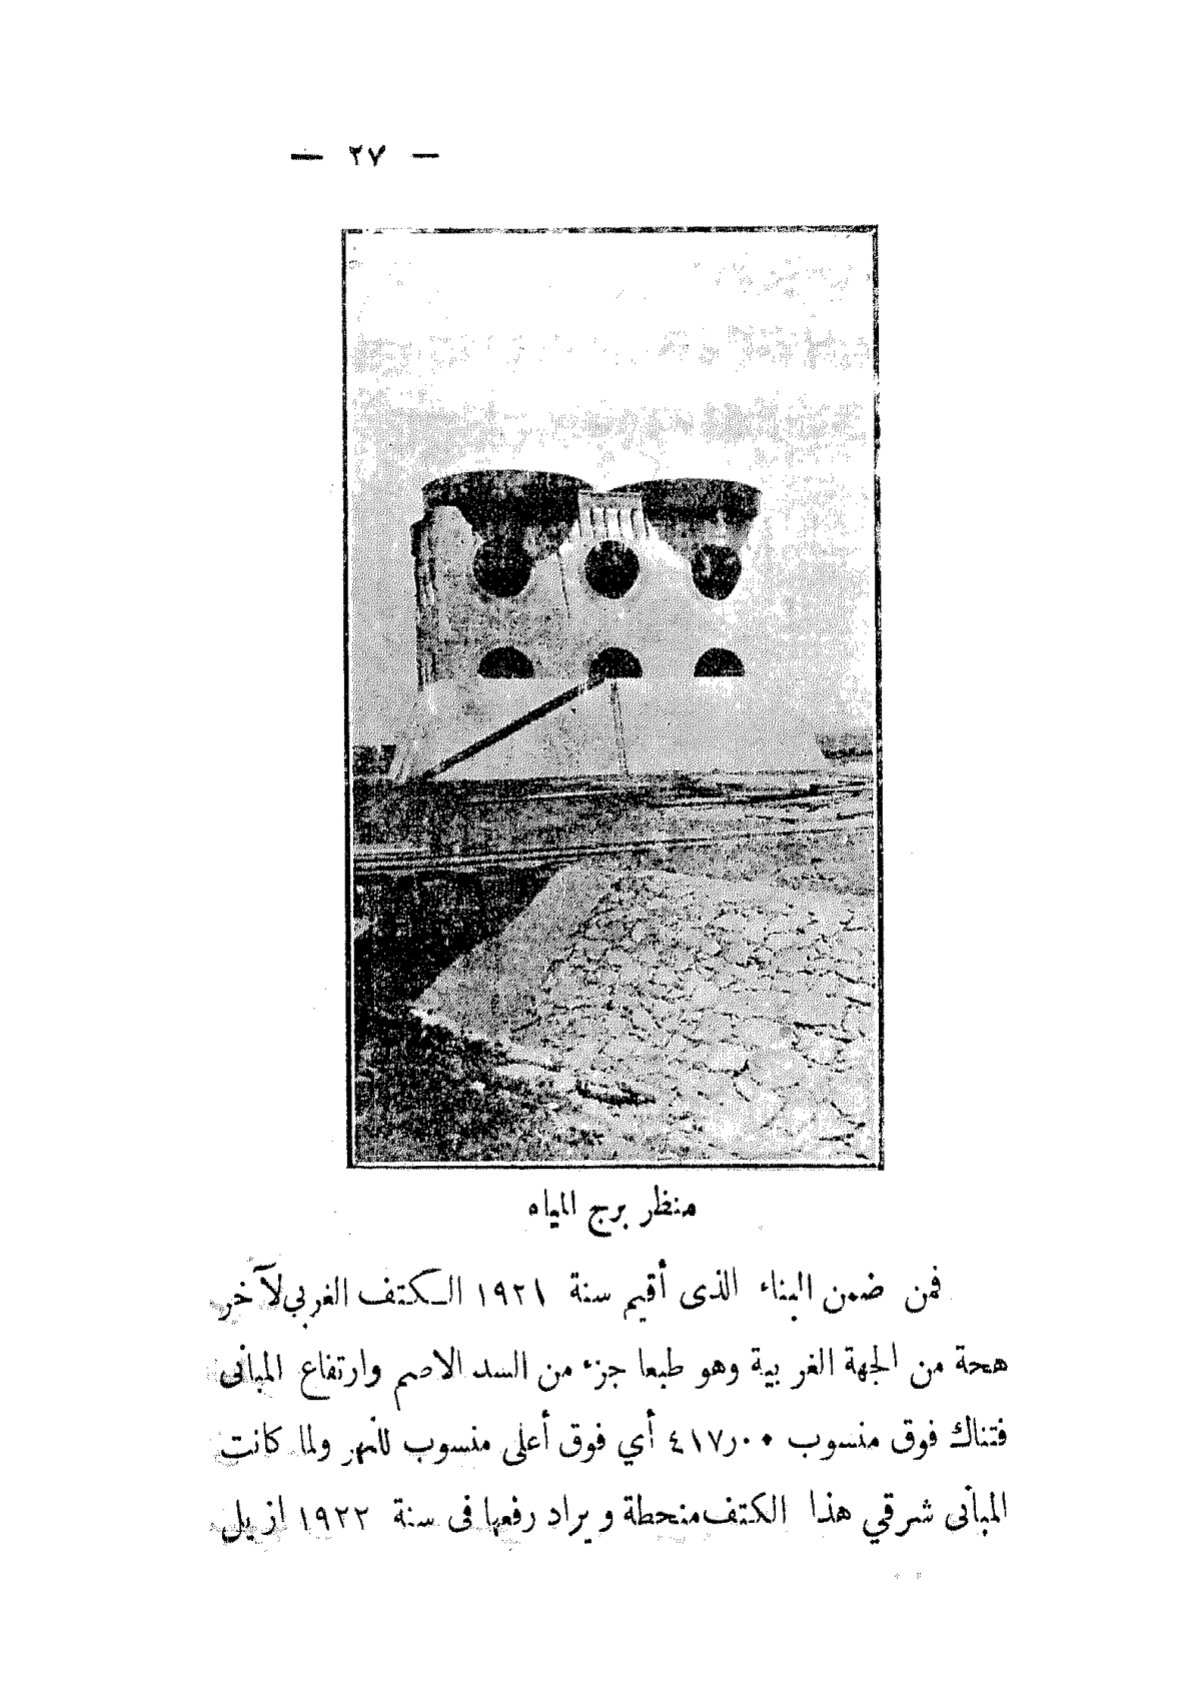 — ٢٧ —
منظر برج المياه
فمن ضمن البناء الذى أقيم سنة ١٩٢١ الكتف الغربي لآخر
هحة من الجهة الغربية وهو طبعا جزء من السد الاصم وارتفاع المبانى
فتناك فوق منسوب ٤١٧٫٠٠ أي فوق أعلى منسوب للنهر ولما كانت
المبانى شرقي هذا الكتف منحطة ويراد رفعها فى سنة ١٩٢٢ ازيل